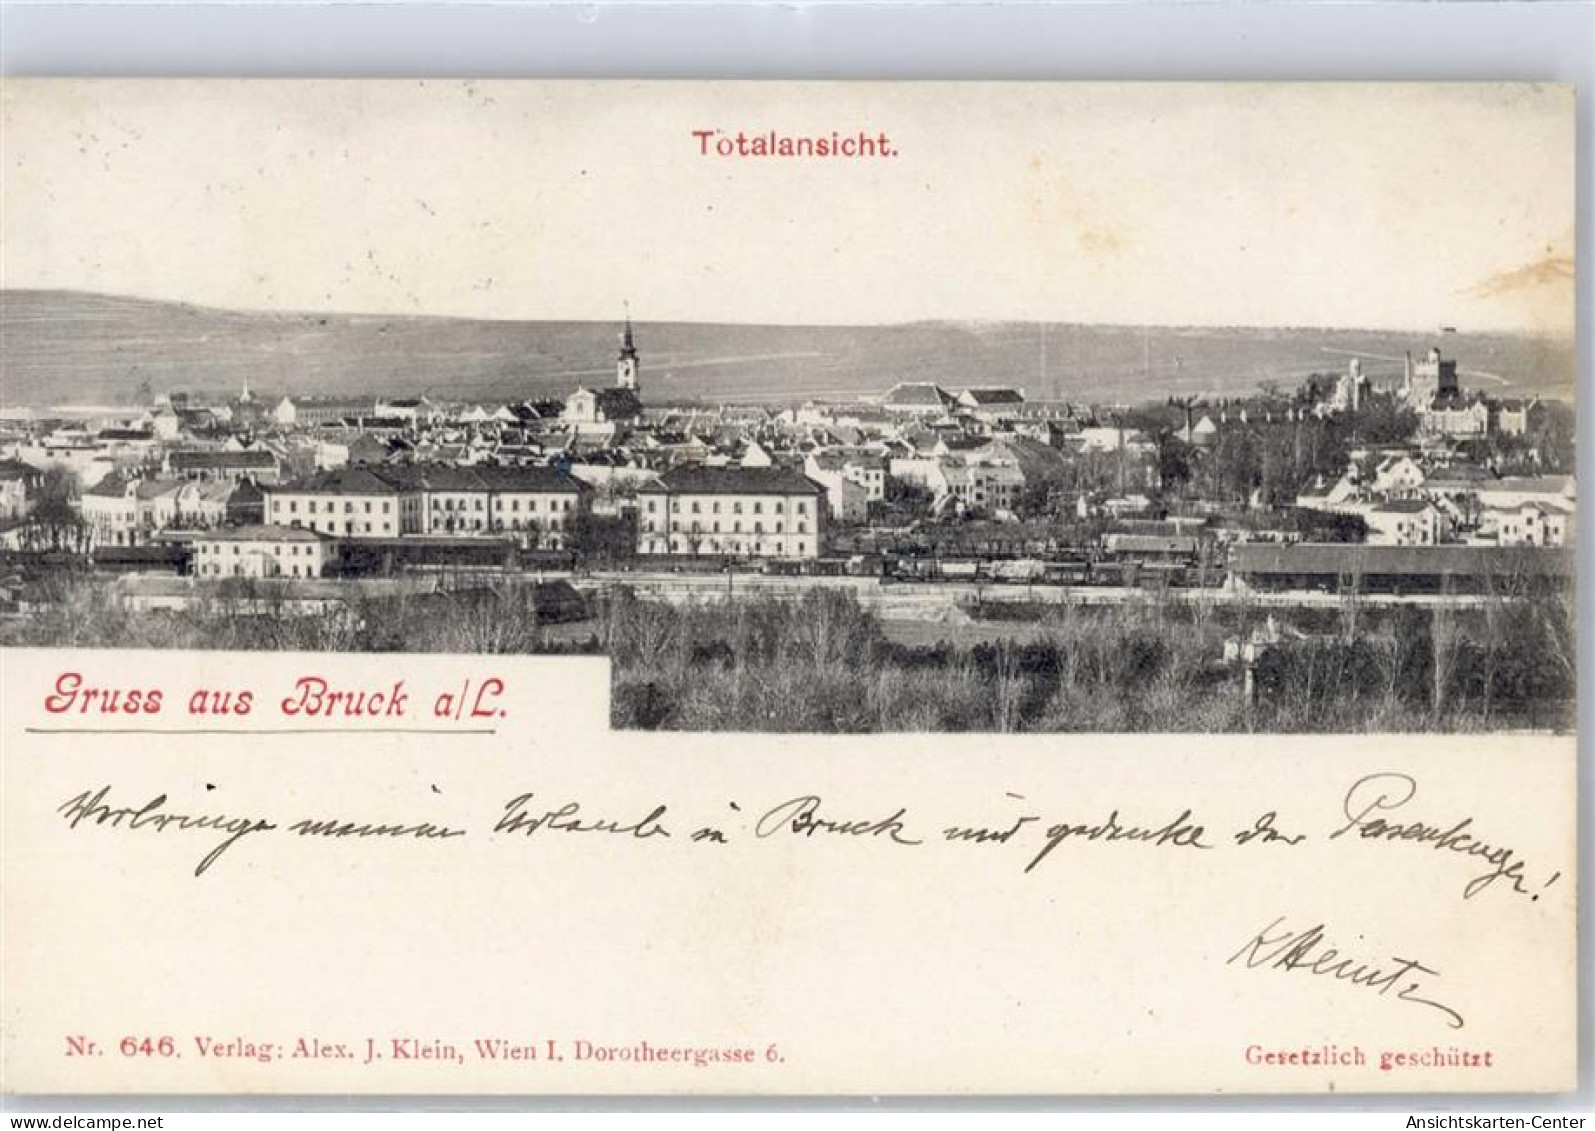 Totalansicht.
Gruss aus Bruck a/L.
Verbringe meinen Urlaub in Bruck und gedenke der
K Heintz
Nr. 646. Verlag: Alex. J. Klein, Wien I. Dorotheergasse 6.
Gesetzlich geschützt
Ansichtskarten-Center